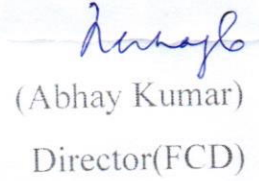 (Abhay Kumar)
Director(FCD)